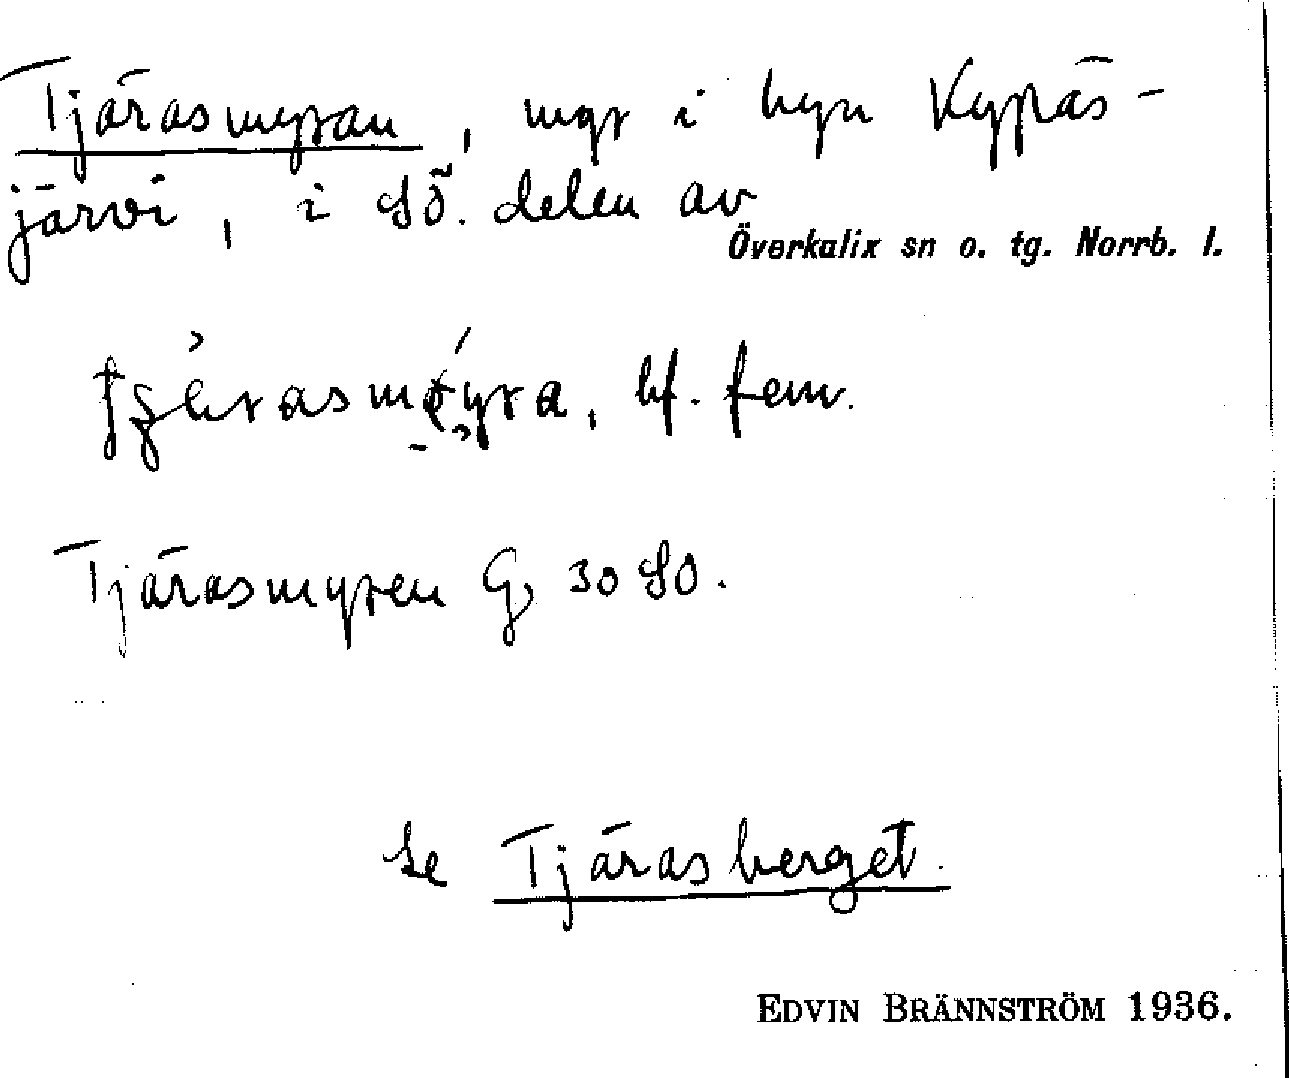 Tjärasmyran, myr i byn Kypäs-
järvi, i SÖ. delen av
Överkalix sn o. tg. Norrb. l.
bf. fem.
Tjärasmyren G, 30 SO.
Se Tjärasberget.
EDVIN BRÄNNSTRÖM 1936.